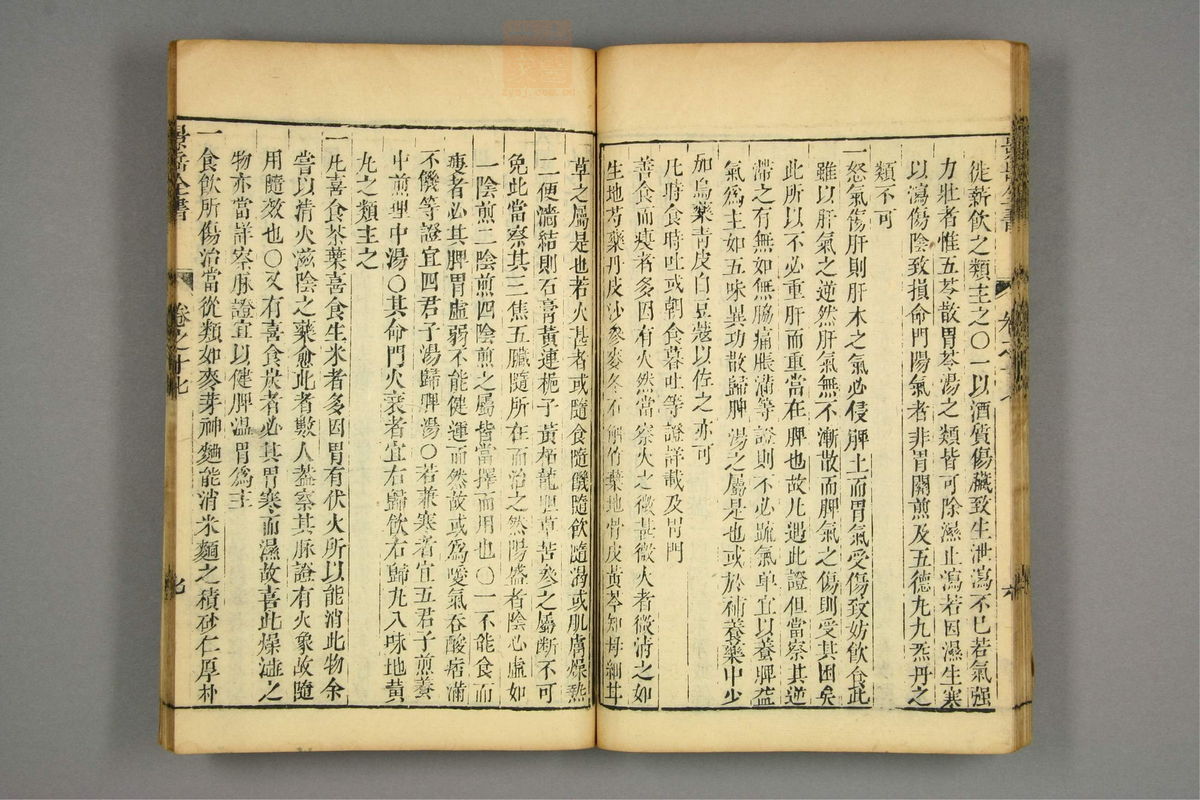 徙薪飲之類主之〇一以酒質傷臟致生泄瀉不已若氣强
力壯者惟五苓散胃苓湯之類皆可除濕止瀉若因濕生寒
以瀉傷陰致損命門陽氣者非胃關煎及五德丸九炁丹之
類不可
一怒氣傷肝則肝木之氣必侵脾土而胃氣受傷致妨飲食此
雖以肝氣之逆然肝氣無不漸散而脾氣之傷則受其困矣
此所以不必重肝而重當在脾也故凡遇此證但當察其逆
滯之有無如無脇痛脹滿等證則不必疏氣单宜以養脾益
氣爲主如五味異功散歸脾湯之屬是也或於補養藥中少
加烏藥青皮白豆蔻以佐之亦可
凡時食時吐或朝食暮吐等證詳載反胃門
善食而瘦者多因有火然當察火之微甚微火者微清之如
生地芍藥丹皮沙參麥冬石斛竹葉地骨皮黃芩知母細甘
草之屬是也若火甚者或隨食隨饑隨飲隨渴或肌膚燥熱
二便濇結則石膏黃連梔子黃栢龍胆草苦參之屬斷不可
免此當察其三焦五臟隨所在而治之然陽盛者陰必虛如
一陰煎二陰煎四陰煎之屬皆當擇而用也〇一不能食而
瘦者必其脾胃虛弱不能健運而然故或爲噯氣吞酸痞滿
不饑等證宜四君子湯歸脾湯〇若兼寒者宜五君子煎養
中煎理中湯〇其命門火衰者宜右歸飲右歸丸八味地黃
丸之類主之
一凡喜食茶葉喜食生米者多因胃有伏火所以能消此物余
嘗以清火滋陰之藥愈此者數人葢察其脉證有火象故隨
用隨效也〇又有喜食炭者必其胃寒而濕故喜此燥濇之
物亦當詳察脉證宜以健脾温胃爲主
一食飲所傷治當從類如麥芽神麯能消米麵之積砂仁厚朴
景岳全書
卷之十七
七